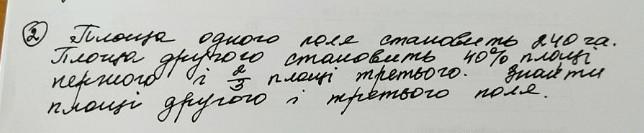 ② Площа одного поля становить 240 га.
Площа другого становить 40% площі
першого і 2/3 площі третього. Знайти
площі другого і третього поля.